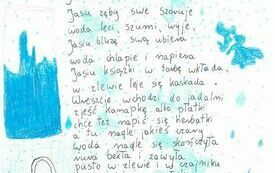 Jasiu zęby swe szoruje
woda leci, szumi, wyje.
Jasiu bluzę swą ubiera
woda chlapie i napiera
Jasiu książki w torbę wkłada,
w zlewie leje się kaskada.
Wreszcie wchodzi do jadalni
zjeść kanapkę albo płatki
chce też napić się herbatki
a tu nagle jakieś czary
woda nagle się skończyła
rura bekła i zawyła
pusto w zlewie i w czajniku